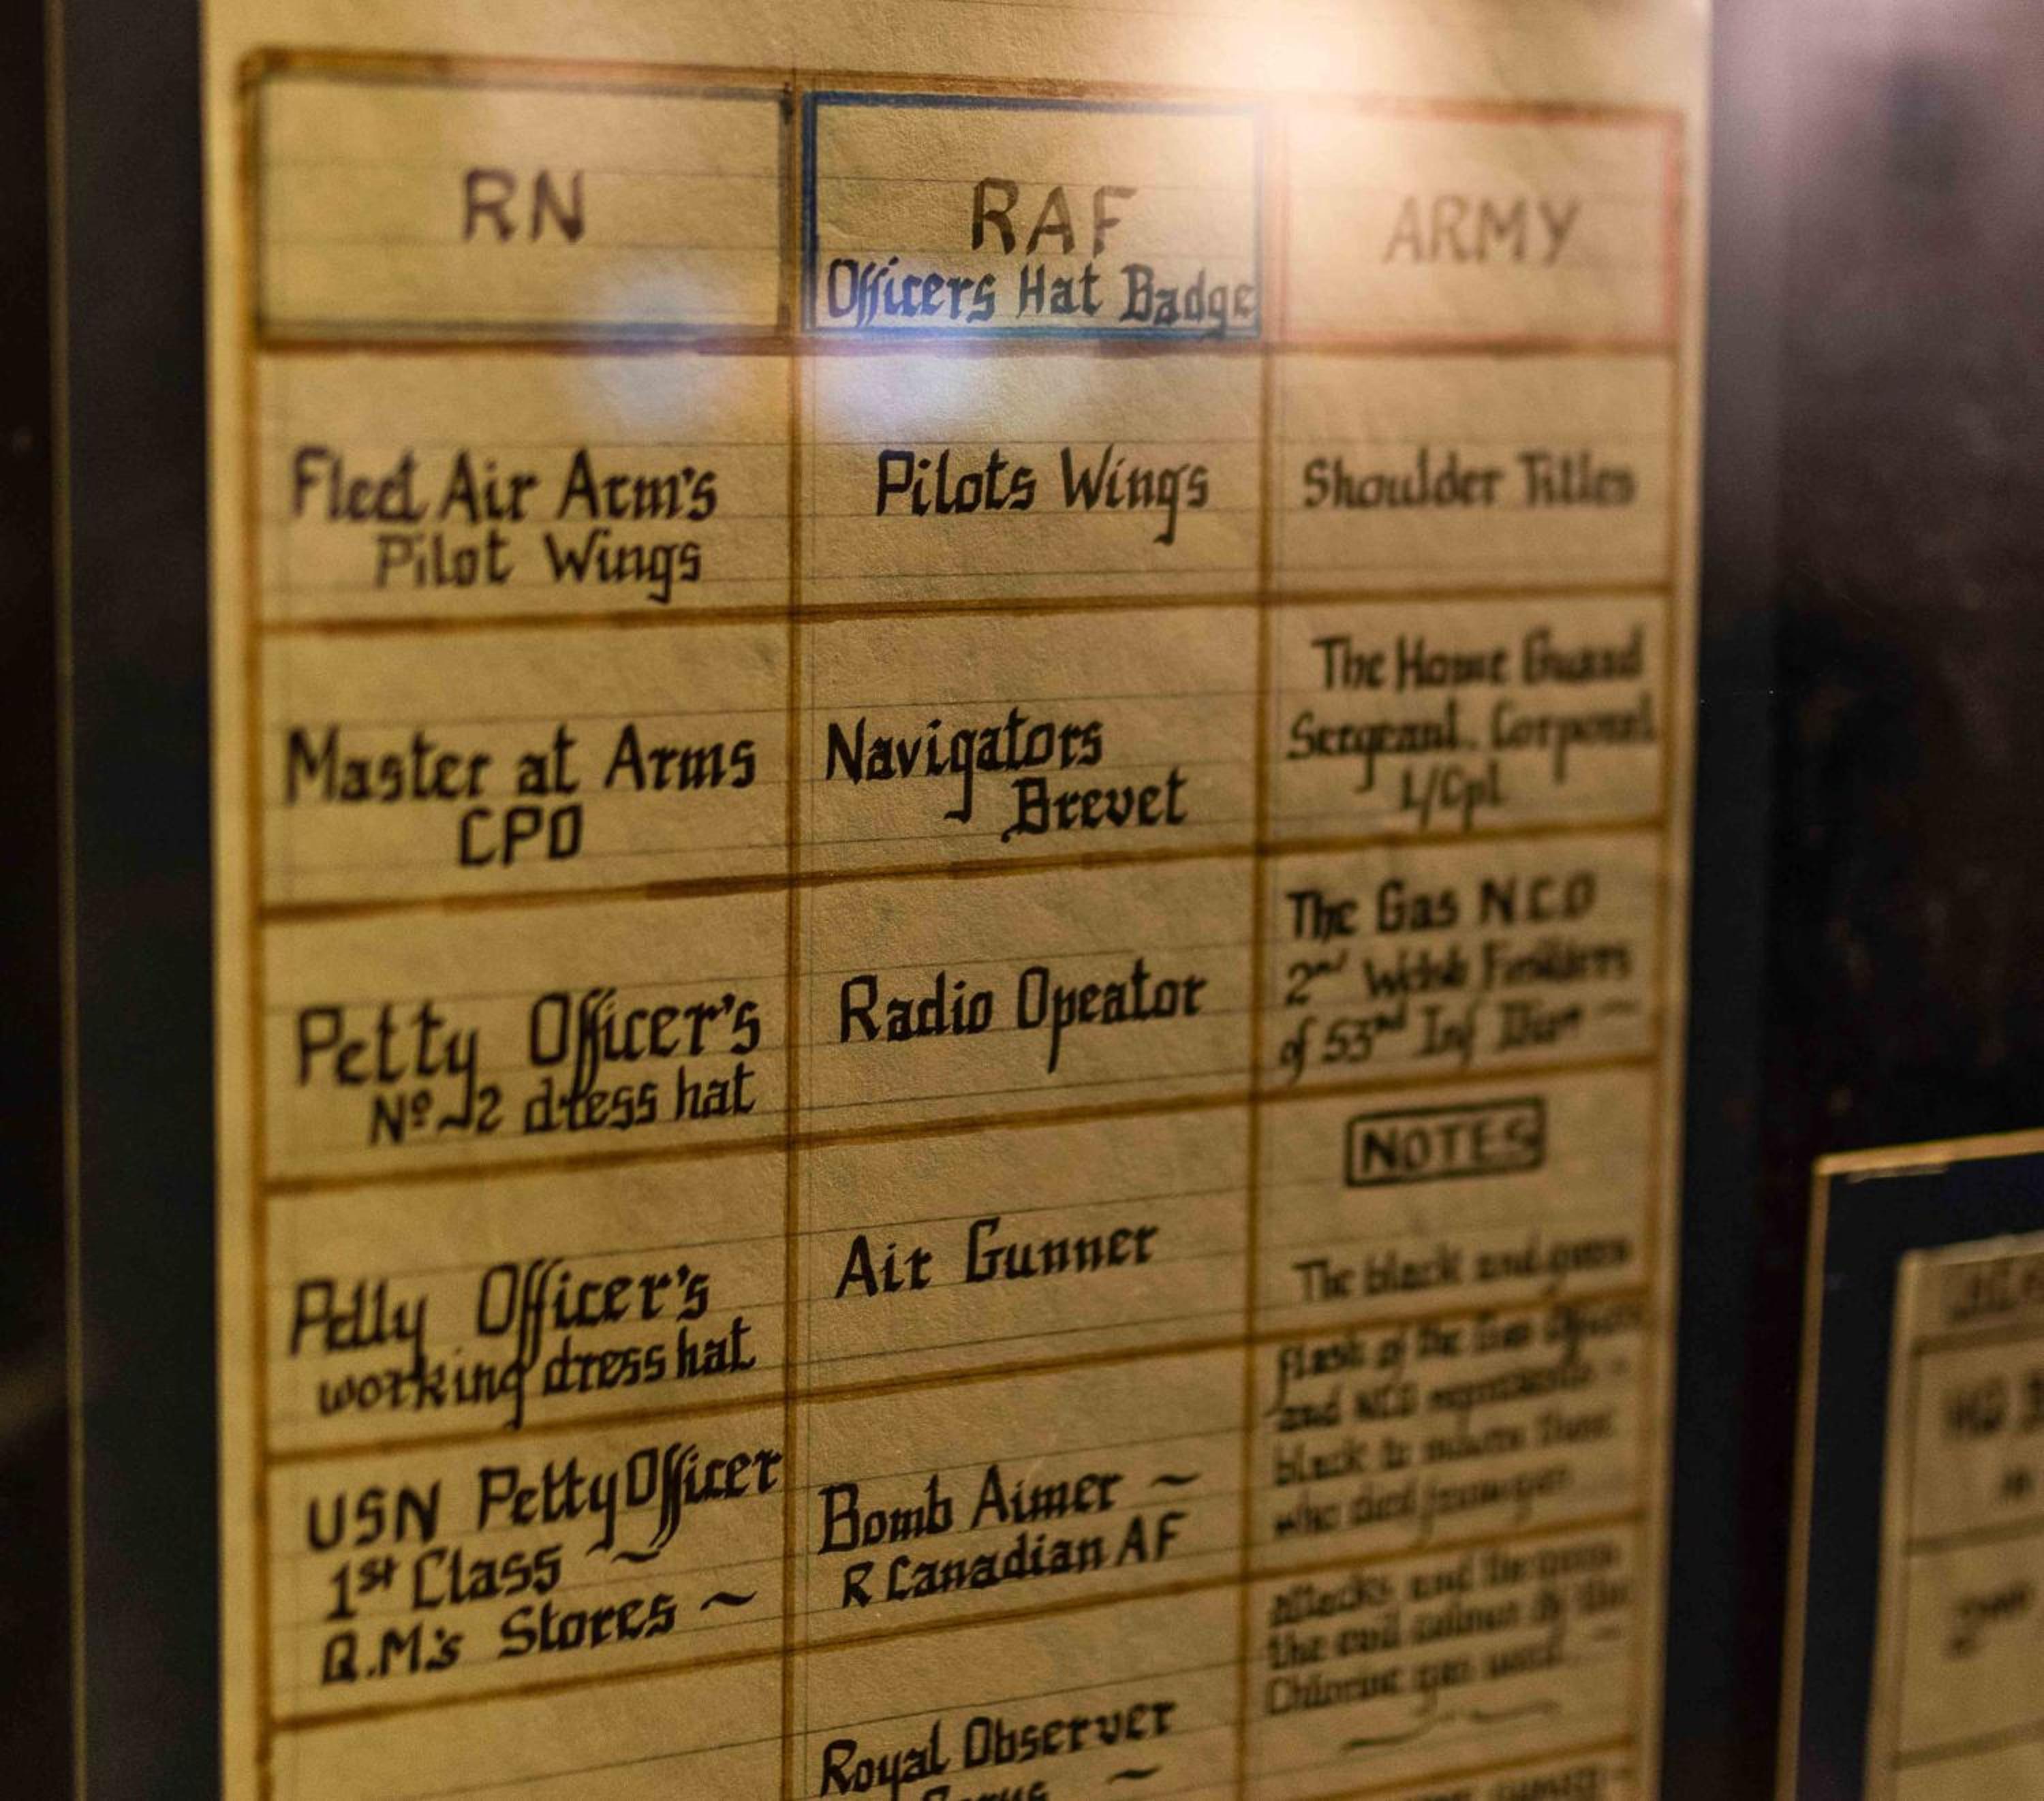 RN
RAF
Officers Hat Badge
ARMY
Fleet Air Arm's
Pilot Wings
Pilots Wings
Shoulder Titles
Master at Arms
CPO
Navigators
Brevet
The Home Guard
Sergeant. Corporal
L/Cpl
Petty Officer's
Nº 2 dress hat
Radio Opeator
The Gas N.C.O
2nd Welsh Fusiliers
of 53rd Inf Divn ~
Petty Officer's
working dress hat
Air Gunner
NOTES
The black and green
flash of the Gas Officers
and NCO represents -
black to mourn those
who died from gas
attacks and the green
the evil colour of the
Chlorine gas used. ~
USN Petty Officer
1st Class ~
Q.M.'s Stores ~
Bomb Aimer ~
R Canadian AF
Royal Observer
Corps ~